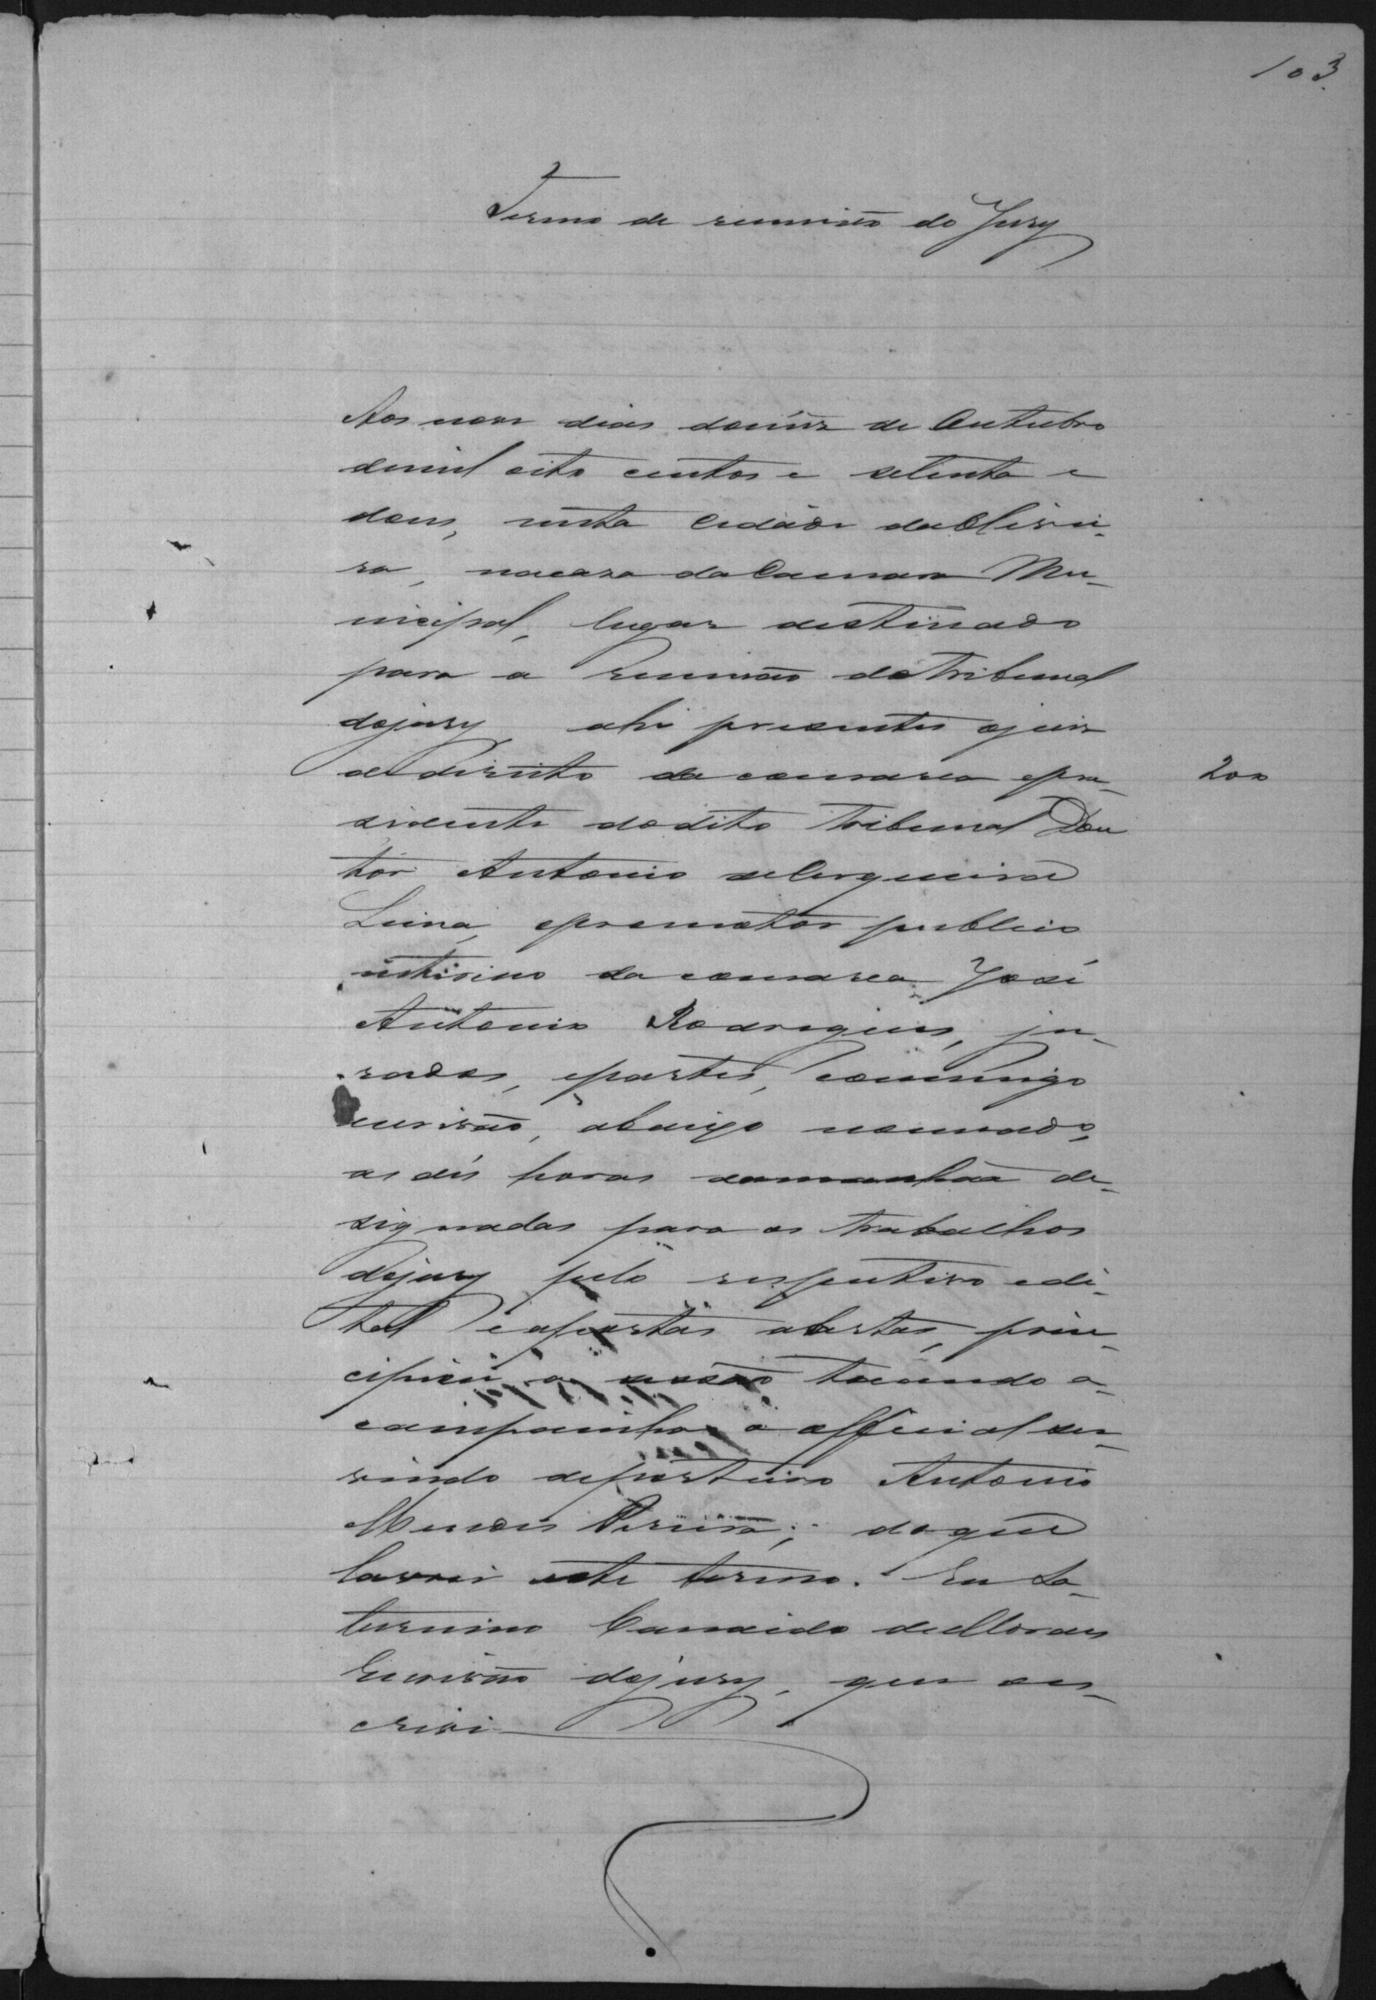 103.
Termo de reunião do Jury
Aos nove dias domez de Outubro
demil oito centos e setenta e
dous, nesta Cidade daOlivei-
ra, nacasa daCamara Mu-
nicipal, lugar destinado
para a reunião doTribunal
dojury ahi presentes ojuiz
dedireito da comarca epre-
200
sidente dodito Tribunal Dou
tor Antonio deCerqueira
Lima, epromotor publico
interino da comarca José
Antonio Rodrigues, ju-
rados, epartes, commigo
escrivão, abaixo nomeado,
as dés horas damanhãa de-
signadas para os trabalhos
dojury pelo respectivo edi-
tal eaportas abertas, prin-
cipiou a sessão tocando a
campainha o official ser-
vindo deporteiro Antonio
Mendes Pereira; doque
lavrei este termo. Eu Sa-
turnino Candido deMoraes
Escrivão dojury, que es-
crivi